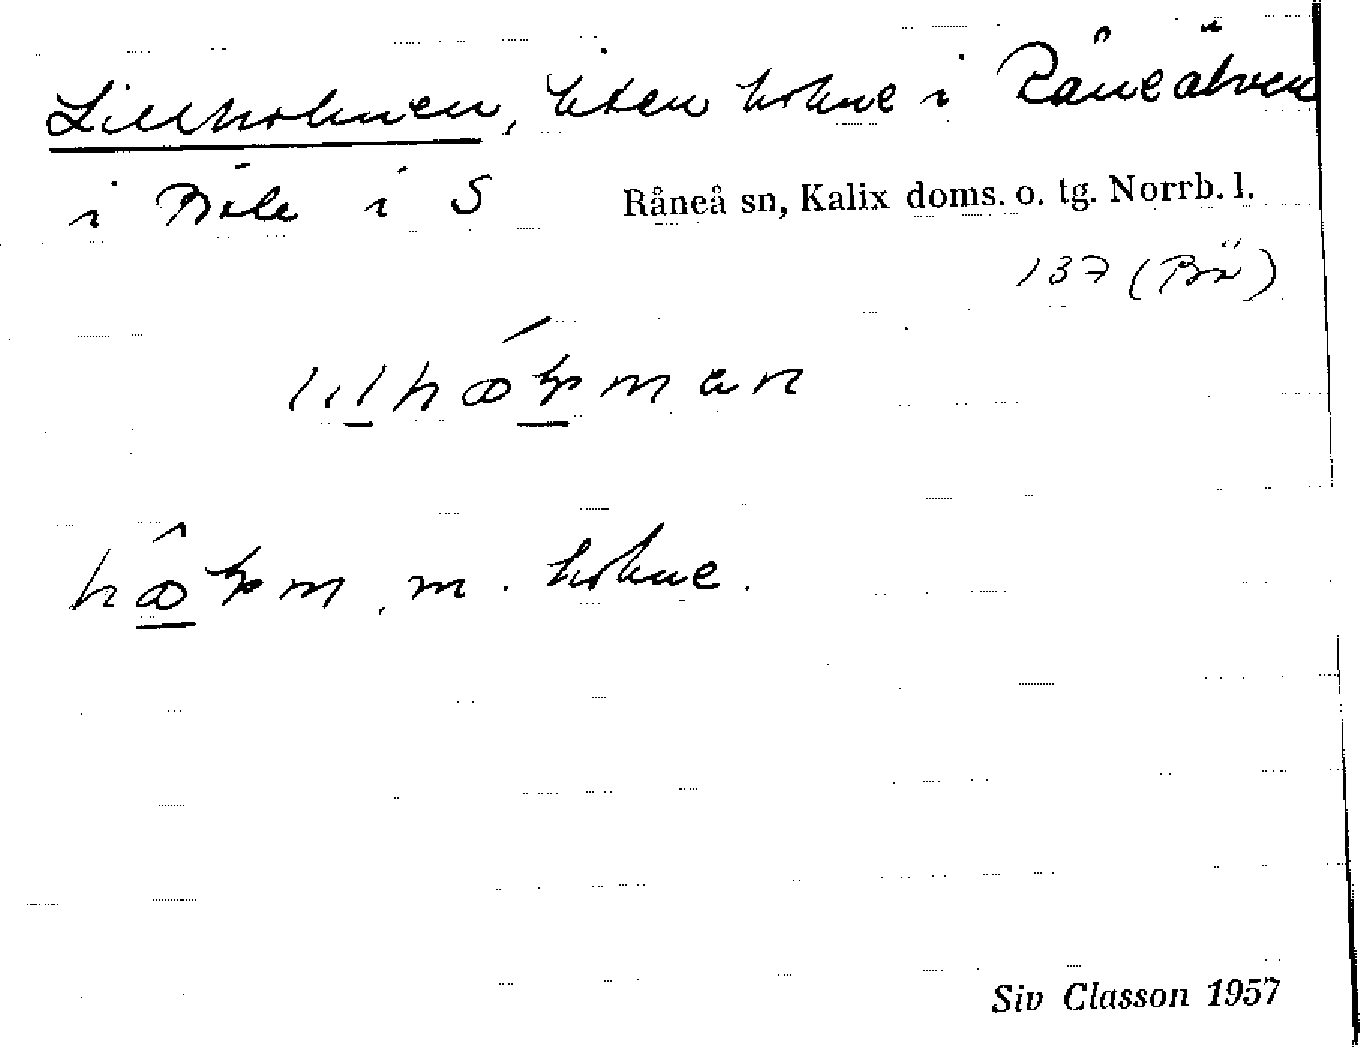 Lillholmen, liten holme i Råneälven
i Böle i S
Råneå sn, Kalix doms. o. tg. Norrb. l.
137 (Bö)
m. holme.
Siv Classon 1957